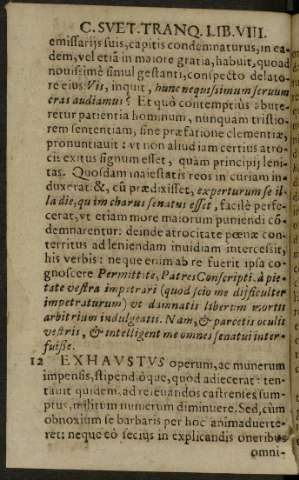 C. SVET. TRANQ. LIB. VIII.
emissarijs suis, capitis condemnaturus, in ea-
dem, vel etiā in maiore gratia, habuit, quoad
nouissimè simul gestanti, conspecto delato-
re eius: Vis, inquit, hunc nequissimum seruum
cras audiamus? Et quò contemptiùs abute-
retur patientia hominum, nunquam tristio-
rem sententiam, sine præfatione clementiæ,
pronuntiauit: vt non aliud iam certius atro-
cis exitus signum esset, quàm principij leni-
tas. Quosdam maiestatis reos in curiam in-
duxerat: &, cũ prædixisset, experturum se il-
la die, quàm charus senatus esset, facilè perfe-
cerat, vt etiam more maiorum puniendi cõ-
demnarentur: deinde atrocitate pœnæ con-
territus ad leniendam inuidiam intercessit,
his verbis: neque enim ab re fuerit ipsa co-
gnoscere Permittite, Patres Conscripti, à pie-
tate vestra impetrari (quod scio me difficulter
impetraturum) vt damnatis liberum mortis
arbitrium indulgeatis. Nam, & parcetis oculis
vestris, & intelligent me omnes senatui inter-
fuisse.
12 EXHAVSTVS operum, ac munerum
impensis, stipendiòque, quod adiecerat: ten-
tauit quidem, ad releuandos castrenses sum-
ptus, militum numerum diminuere. Sed, cùm
obnoxium se barbaris per hoc animaduerte-
ret: neque eò seciùs in explicandis oneribus
omni-